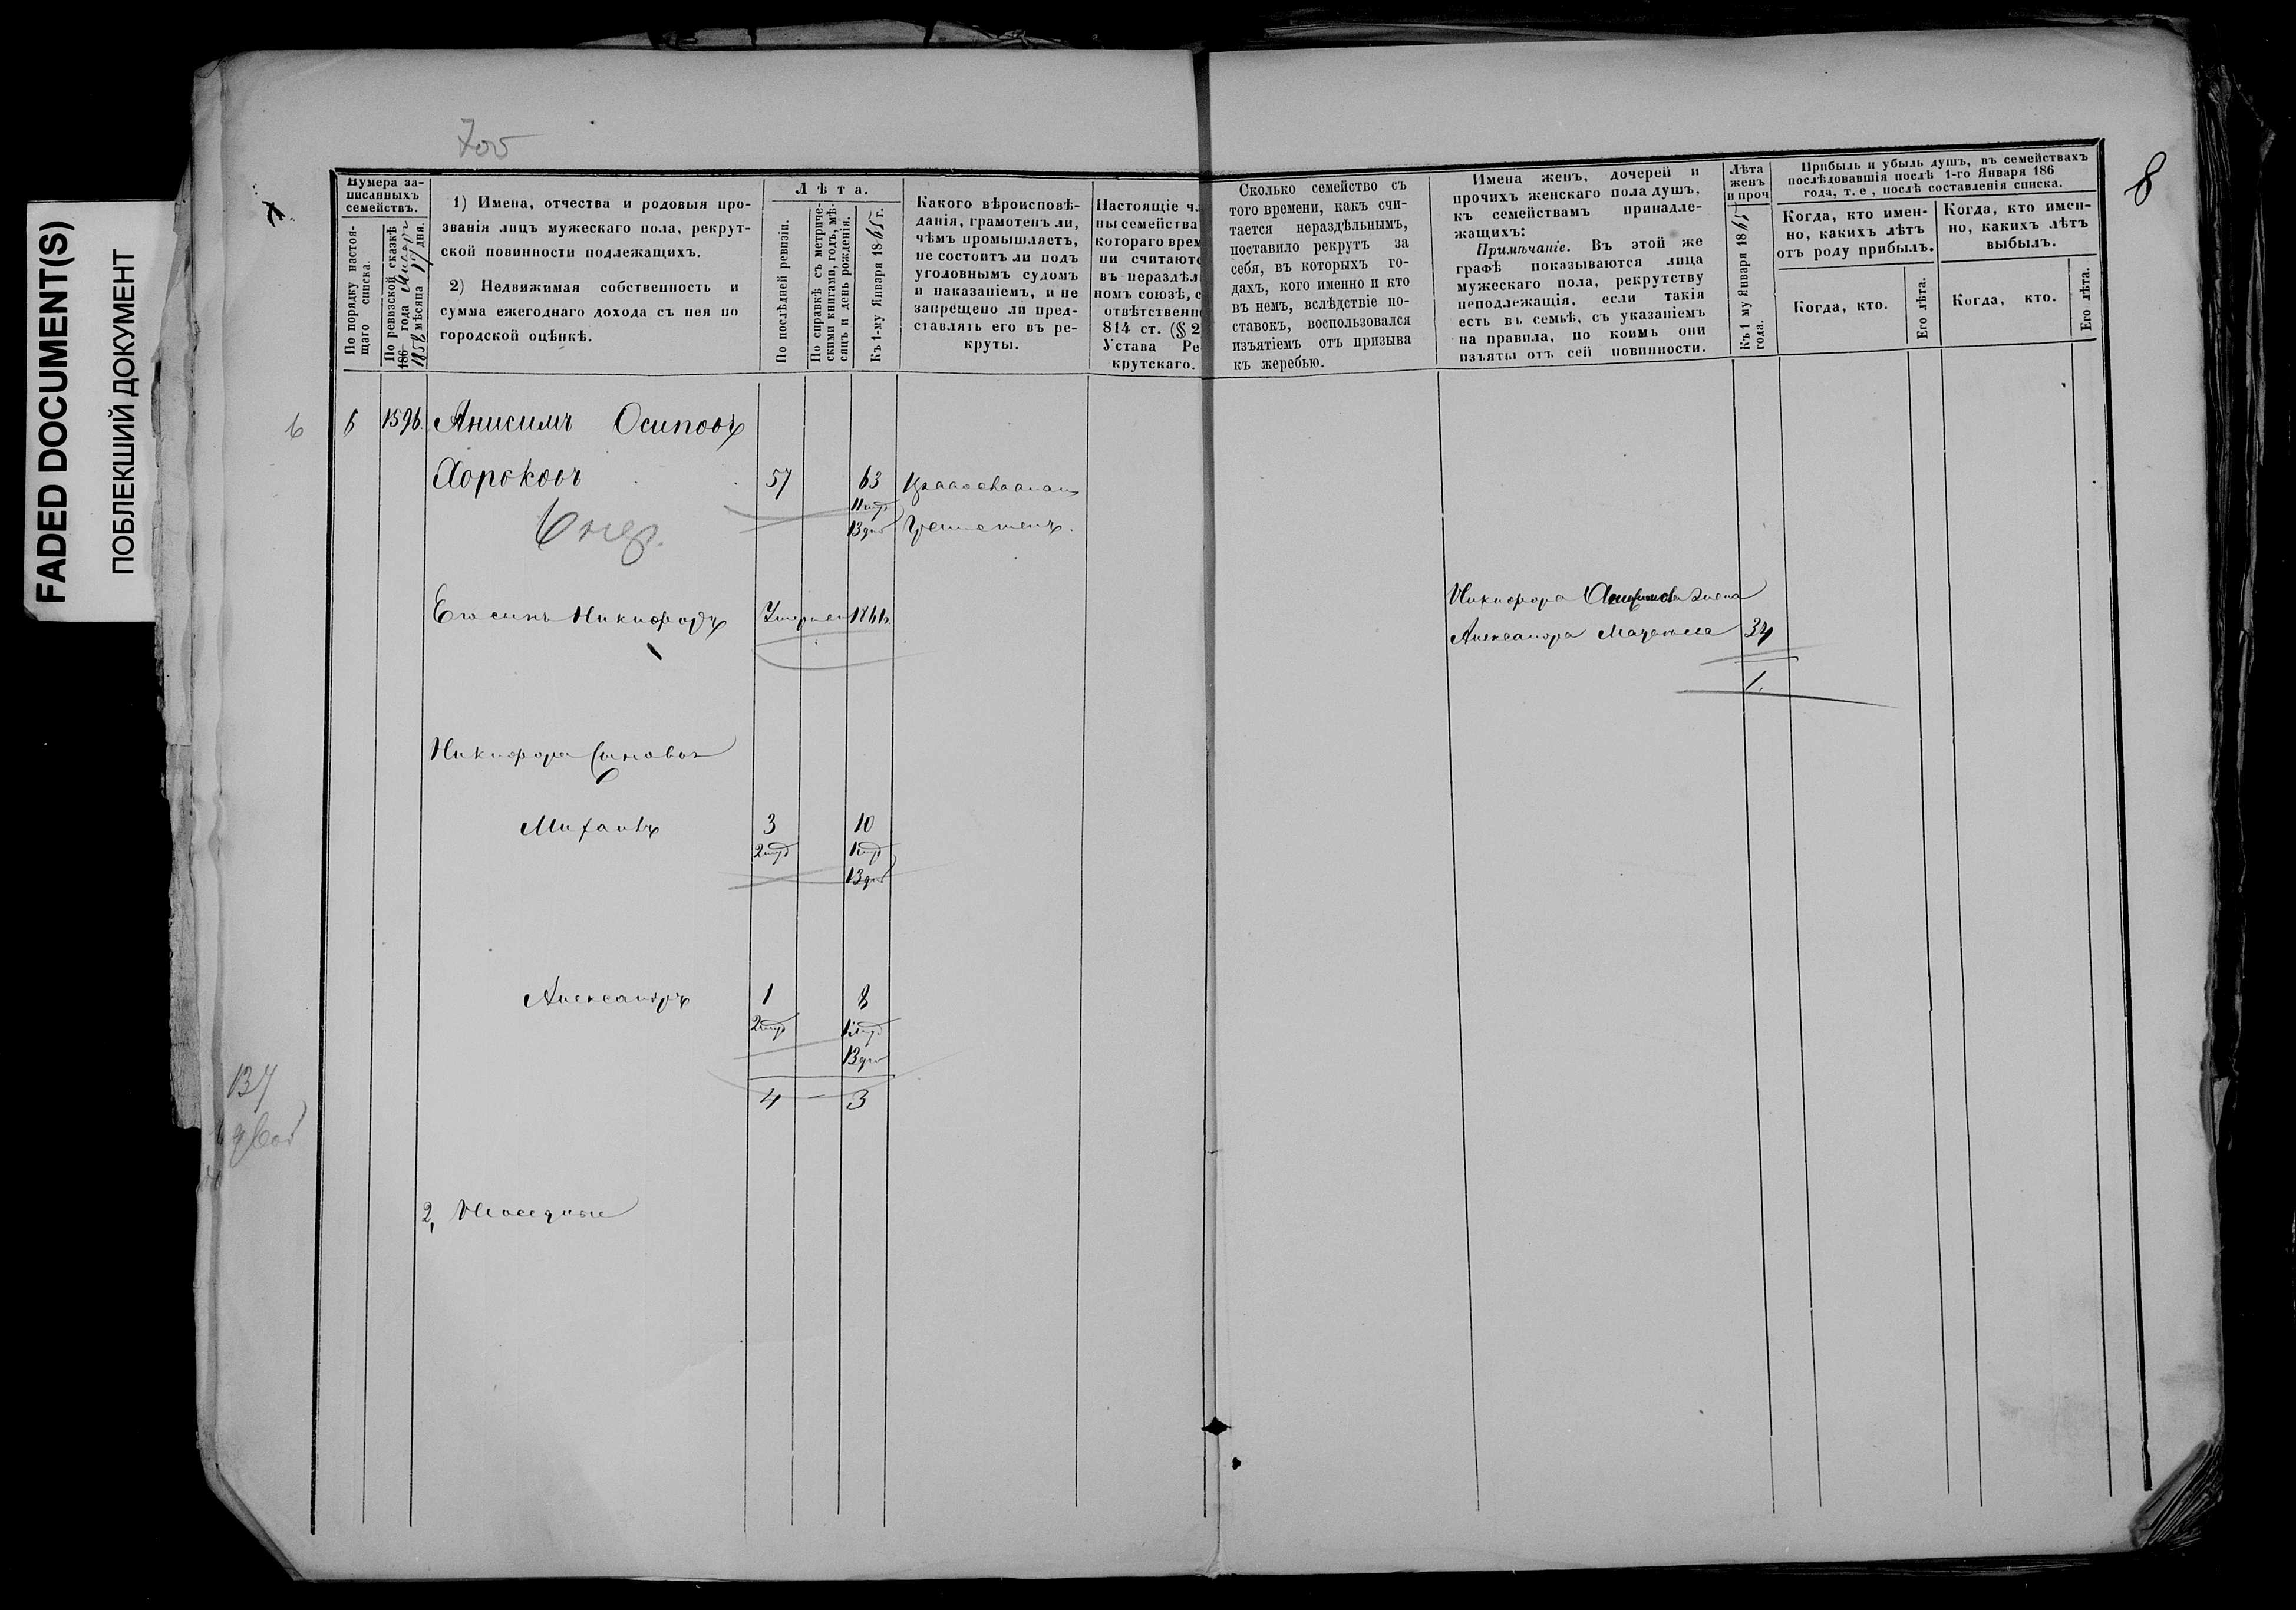 FADED DOCUMENT(S)
ПОБЛЕКШИЙ ДОКУМЕНТ
705
8
Нумера за-
писанныхъ
семействъ.
По порядку настоя-
щаго списка.
По ревизской сказкѣ
186 года
1858 мѣсяца дня.
1) Имена, отчества и родовыя про-
званія лицъ мужескаго пола, рекрут-
ской повинности подлежащихъ.
2) Недвижимая собственность и
сумма ежегоднаго дохода съ нея по
городской оцѣнкѣ.
Лѣта.
По послѣдней ревизіи.
По справкѣ съ метриче-
скими книгами, годъ, мѣ-
сяцъ и день рожденія.
Къ 1-му Января 1865 г.
Какого вѣроисповѣ-
данія, грамотенъ ли,
чѣмъ промышляетъ,
не состоитъ ли подъ
уголовнымъ судомъ
и наказаніемъ, и не
запрещено ли пред-
ставлять его въ ре-
круты.
Настоящіе ч
ны семейства
котораго врем
ни считаютс
въ нераздѣл
номъ союзѣ, с
отвѣтственн
814 ст. (§ 2
Устава Ре
крутскаго.
Сколько семейство съ
того времени, какъ счи-
тается нераздѣльнымъ,
поставило рекрутъ за
себя, въ которыхъ го-
дахъ, кого именно и кто
въ немъ, вслѣдствіе по-
ставокъ, воспользовался
изъятіемъ отъ призыва
къ жеребью.
Имена женъ, дочерей и
прочихъ женскаго пола душъ,
къ семействамъ принадле-
жащихъ:
Примѣчаніе. Въ этой же
графѣ показываются лица
мужескаго пола, рекрутству
неподлежащія, если такія
есть въ семьѣ, съ указаніемъ
на правила, по коимъ они
изъяты отъ сей повинности.
Лѣта
женъ
и проч
Къ 1 му Января 1865
года.
Прибыль и убыль душъ, въ семействахъ
послѣдовавшія послѣ 1-го Января 186
года, т. е, послѣ составленія списка.
Когда, кто имен-
но, какихъ лѣтъ
отъ роду прибылъ.
Когда, кто имен-
но, какихъ лѣтъ
выбылъ.
Когда, кто.
Его лѣта.
Когда, кто.
Его лѣта.
6 6 1596. Анисимъ Осиповъ
57 63
13 дн
Его сынъ Никифоръ Умеръ
Никифора жена
Александра 34
1.
Никифора Сыновья
Михаилъ 3 10
13 дн
Александръ 1 8
13 дн
4 3
137
2,